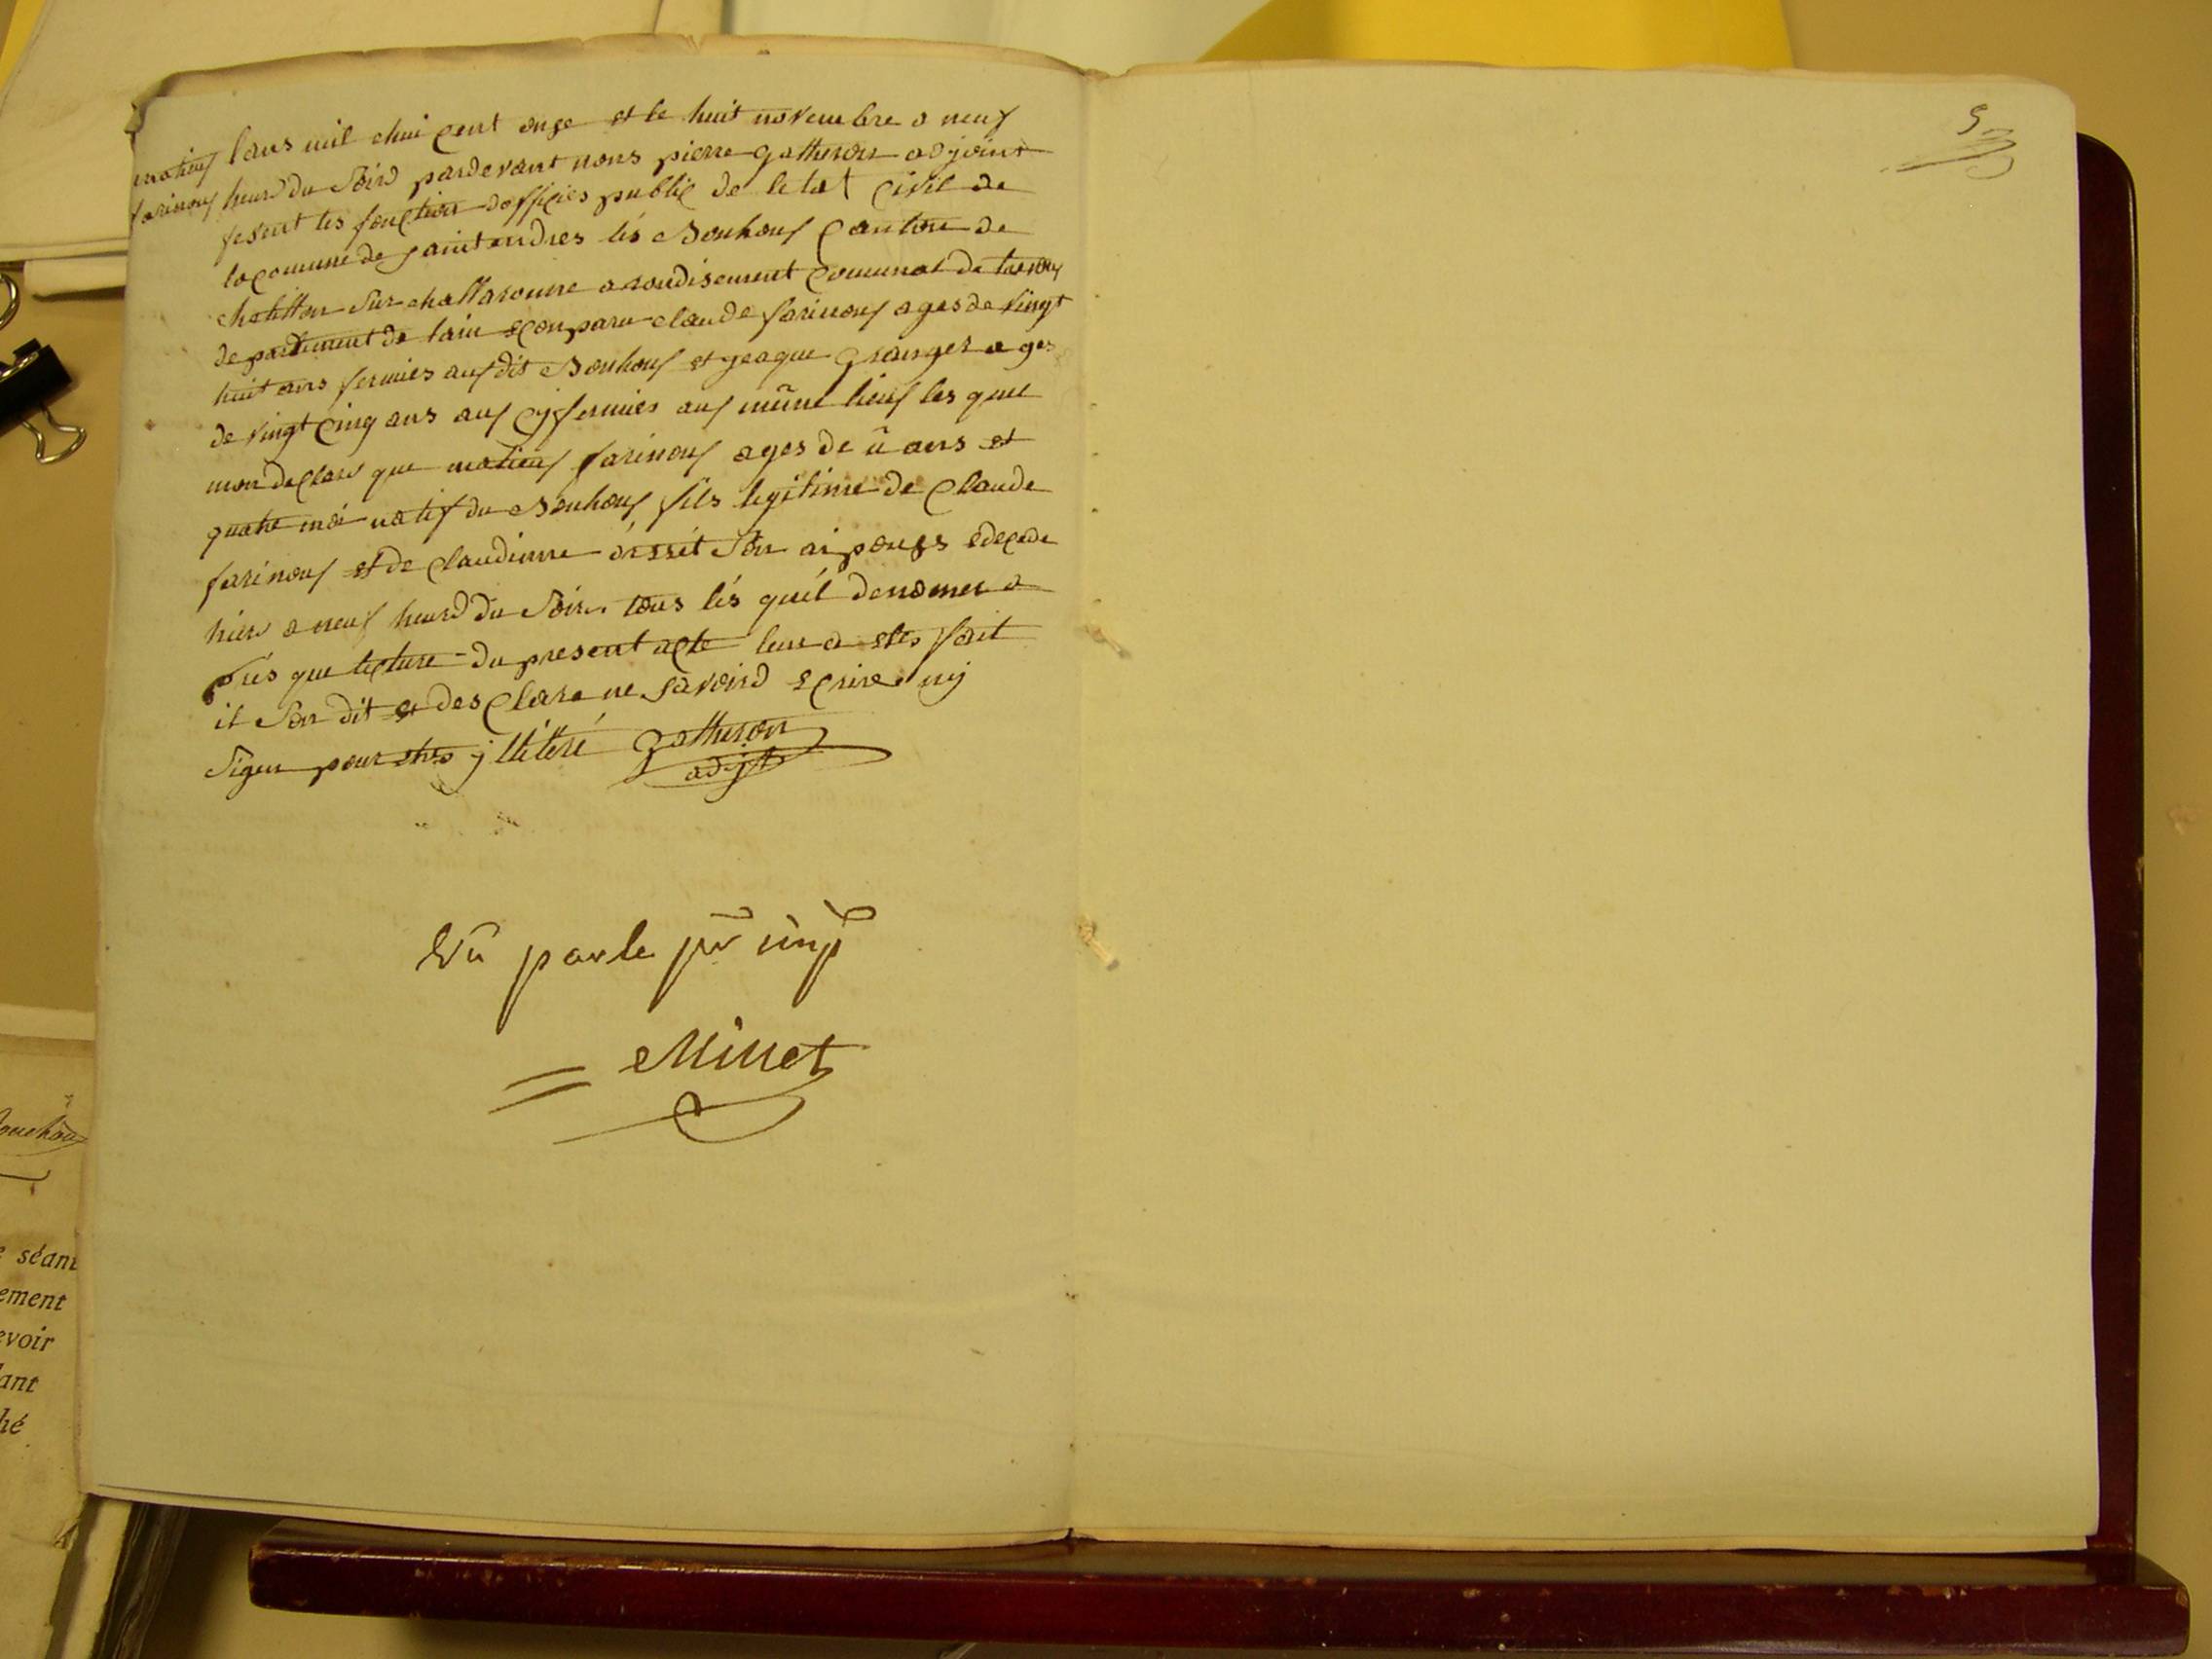 matieuf
farinouf
lans mil chui cent onze et le huit novembre a neuf
heurd du Soird pardevant nous pierre gatheron adjoint
fesent les fonction dofficies public de le tat civil de
la comune de saint andres lés Bouhouf Cantone de
chatitton Sur challaronne arondisement comunal de
departement de lain Comparu claude farinouf ages de vingt
huit ans fermies auf dit Bouhouf et geaque granger ages
de vingt cinq ans auf cy fermies auf mûme lieuf les que
mon declare que matieuf farinouf ages de û ans et
quatre moi natif du Bouhouf fils legitime de claude
farinouf et de claudinne son ai pouze edecede
hiere a neuf heurd du Soire tous lés quél denomer a
prés que lecture du present acte leur a etes fait
il Son dit et des clare ne savoird ecrire nij
Signer pour etre jlliteré gatheron
adjt
Vû par le pr imp
Millet
5
séant
ement
evoir
ant
hé